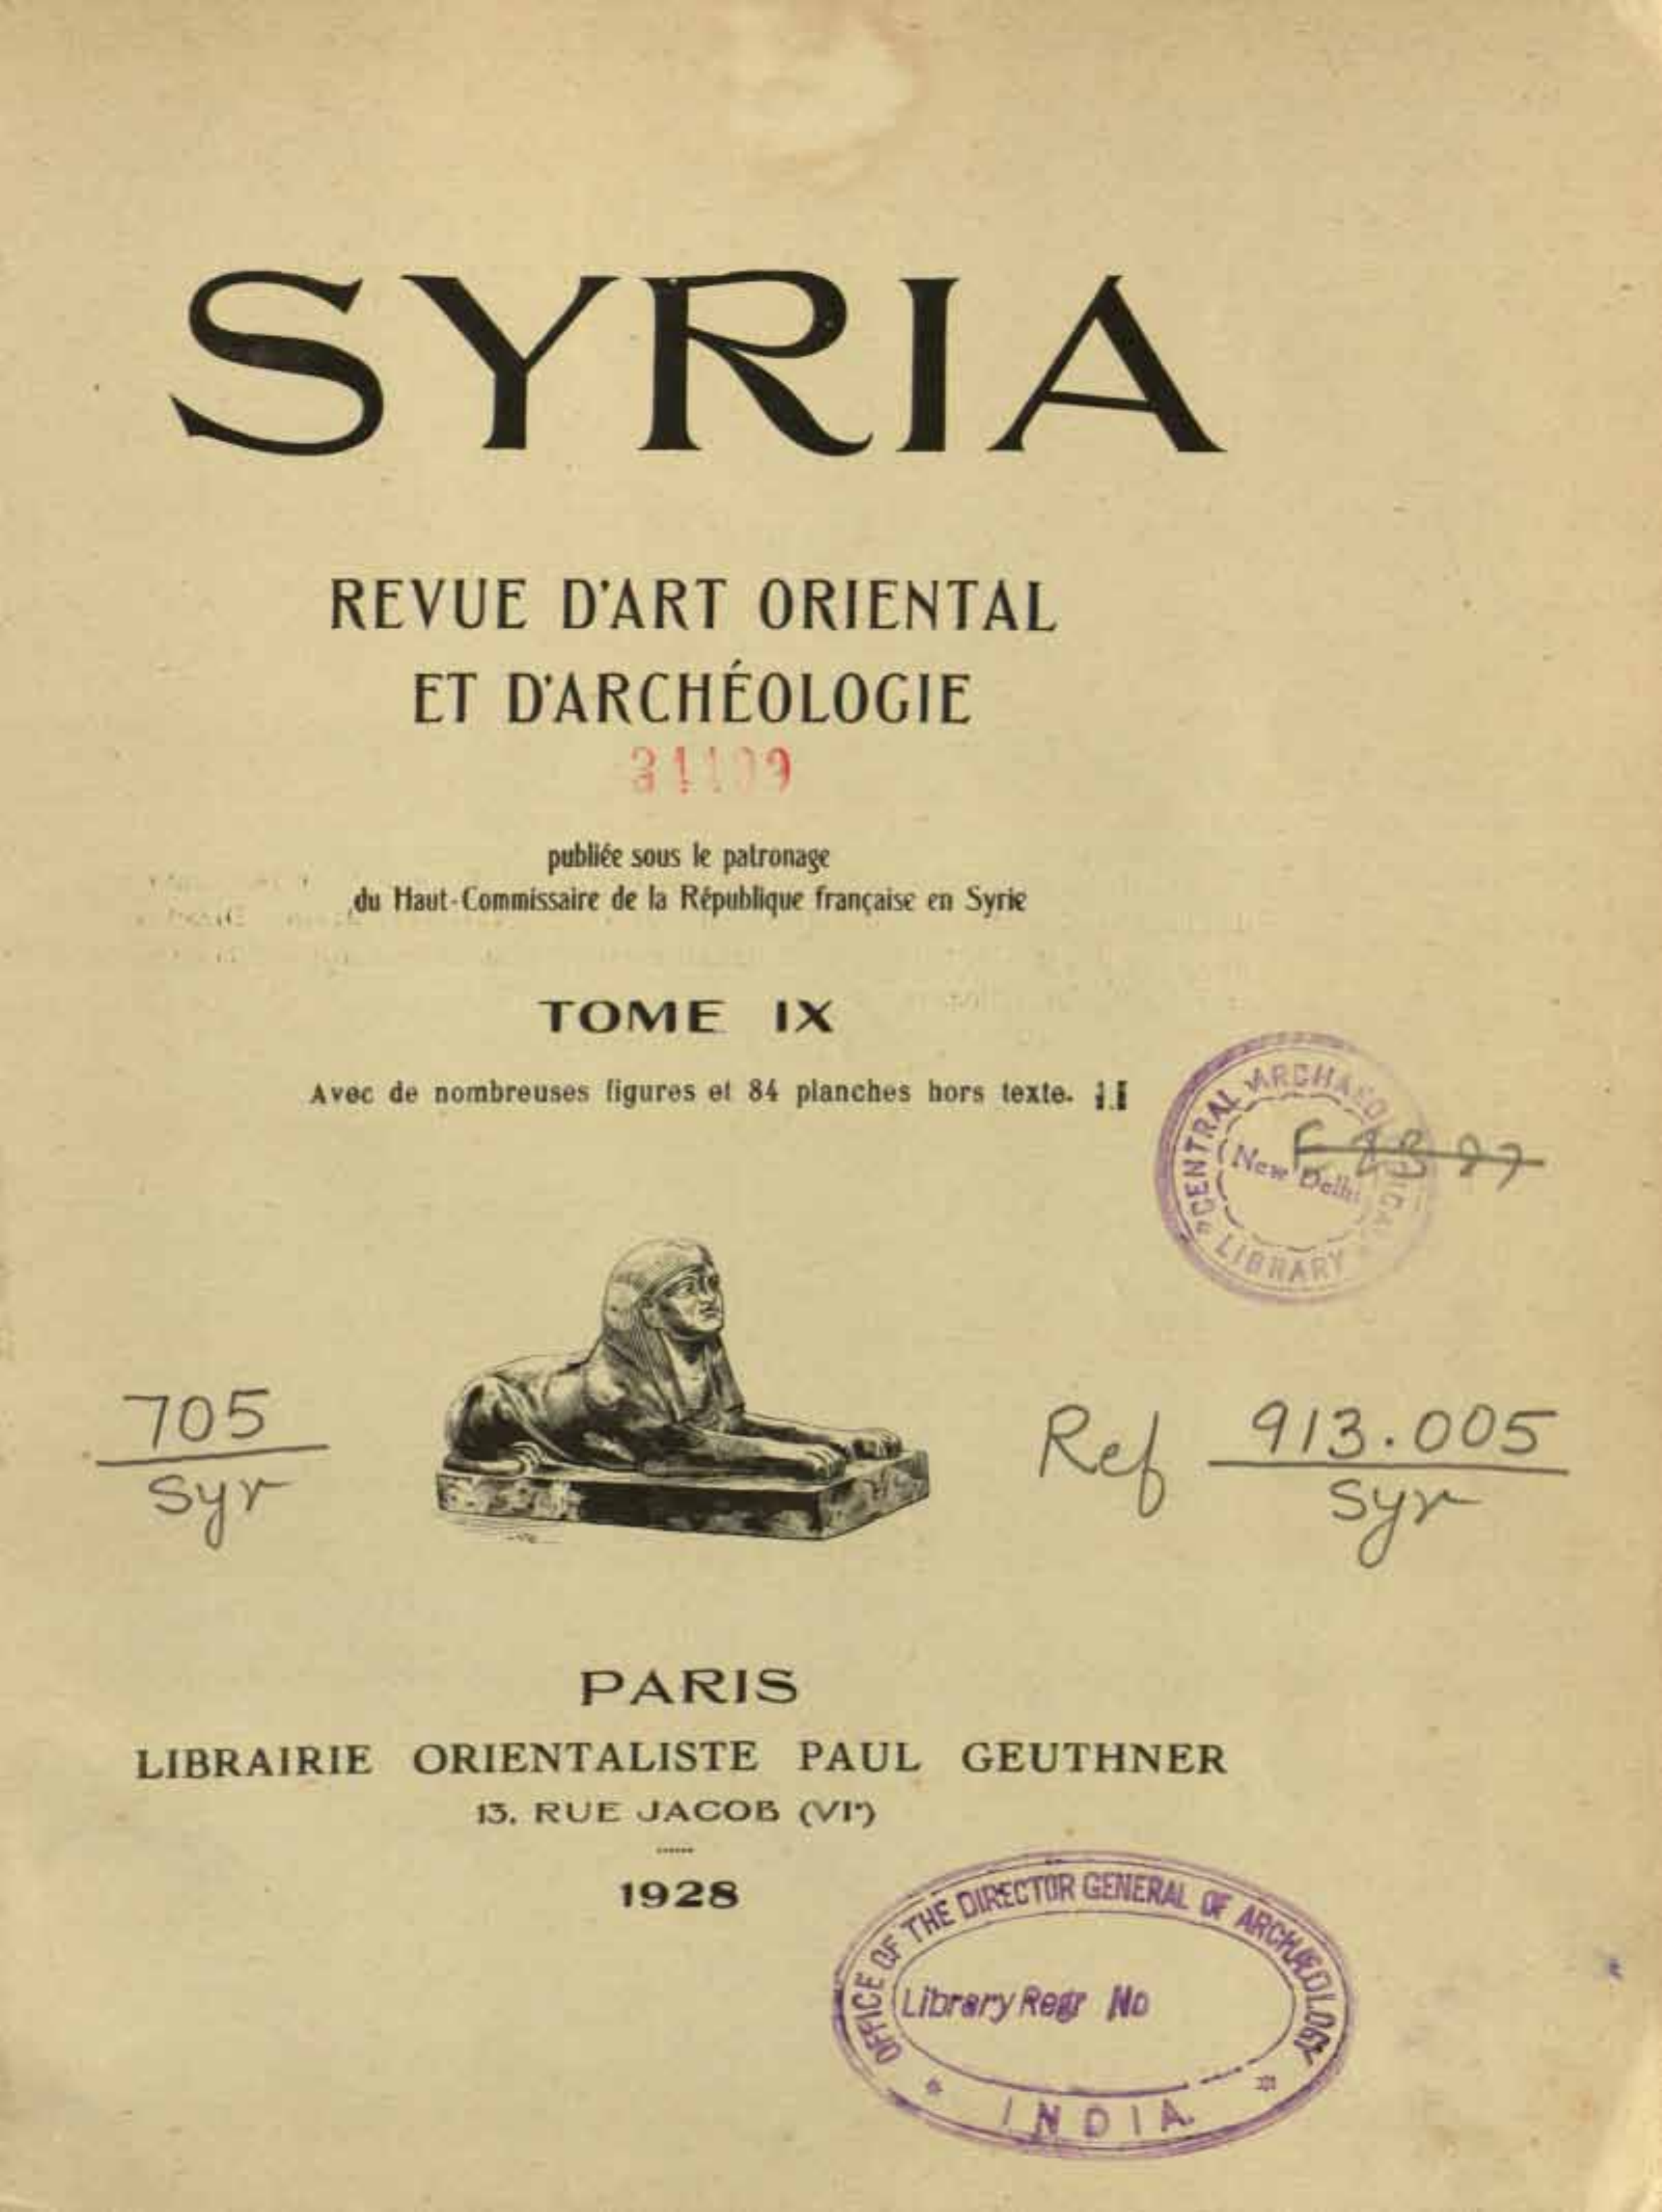 SYRIA
REVUE D'ART ORIENTAL
ET D'ARCHÉOLOGIE
publiée sous le patronage
du Haut-Commissaire de la République française en Syrie
TOME IX
Avec de nombreuses figures et 84 planches hors texte.
CENTRAL ARCHAEOLOGICAL
New Delhi
LIBRARY
705
Syr
Ref 913.005
Syr
PARIS
LIBRAIRIE ORIENTALISTE PAUL GEUTHNER
13, RUE JACOB (VIᵉ)
1928
OFFICE OF THE DIRECTOR GENERAL OF ARCHÆOLOGY
Library Regr No
INDIA.